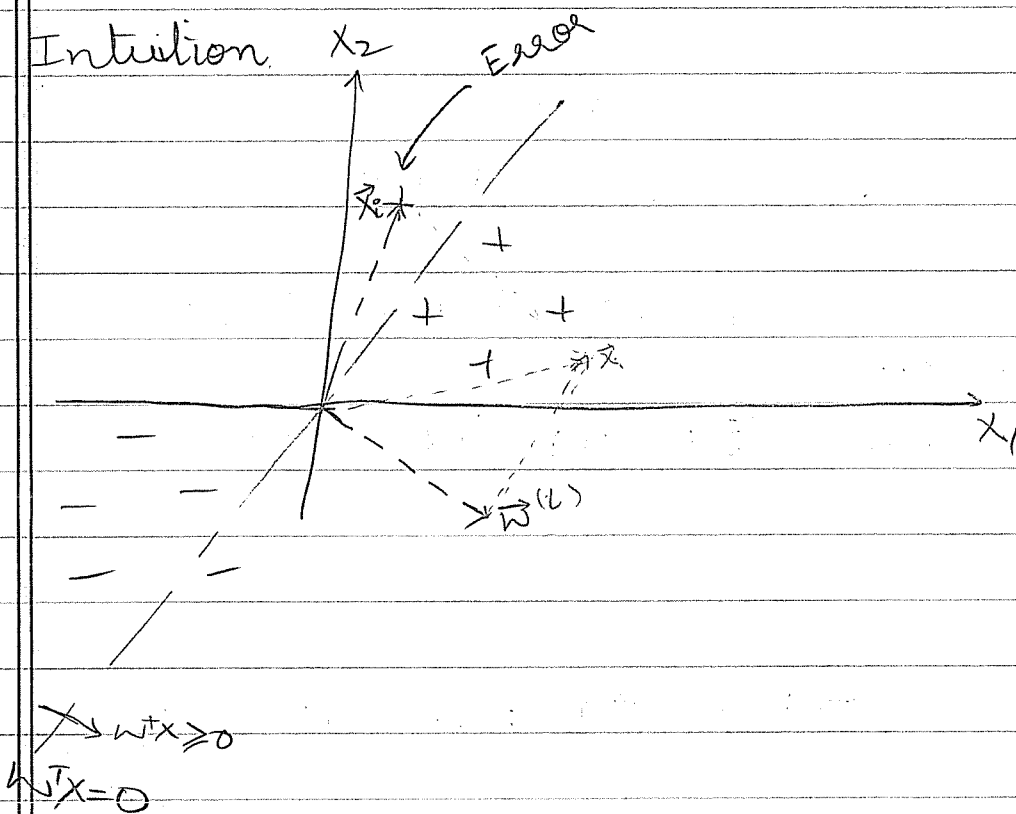 Intuition
X2
Error
x⃗i +
+
+ +
+ x⃗
X1
—
— —
— —
w⃗(t)
wTx ≥ 0
wTx = 0